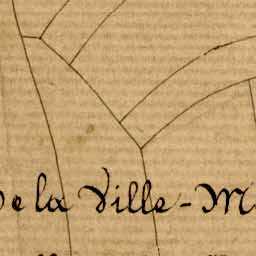 De la Ville-M